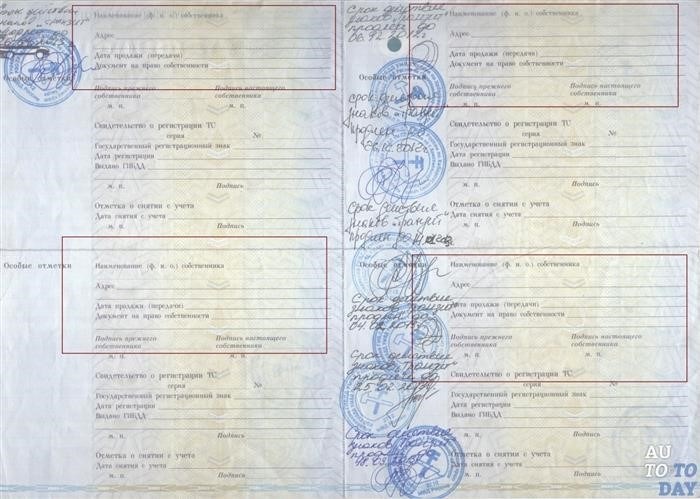 Срок действия
знаков „Транзит"
Особые отметки
Наименование (ф. и. о.) собственника
Адрес
Дата продажи (передачи)
Документ на право собственности
Подпись прежнего собственника
Подпись настоящего собственника
м. п.
м. п.
Свидетельство о регистрации ТС
серия №
Государственный регистрационный знак
Дата регистрации
Выдано ГИБДД
м. п. Подпись
Отметка о снятии с учета
Дата снятия с учета
м. п. Подпись
Особые отметки
Наименование (ф. и. о.) собственника
Адрес
Дата продажи (передачи)
Документ на право собственности
Подпись прежнего собственника
Подпись настоящего собственника
м. п.
м. п.
Свидетельство о регистрации ТС
серия №
Государственный регистрационный знак
Дата регистрации
Выдано ГИБДД
м. п. Подпись
Отметка о снятии с учета
Дата снятия с учета
м. п. Подпись
Срок действия
знаков „Транзит"
продлен до
06.12.2012г
Особые отметки
Срок действия
знаков „Транзит"
продлен до
26.12.2012г
Срок действия
знаков „Транзит"
продлен до
Наименование (ф. и. о.) собственника
Адрес
Дата продажи (передачи)
Документ на право собственности
Подпись прежнего собственника
Подпись настоящего собственника
м. п.
м. п.
Свидетельство о регистрации ТС
серия №
Государственный регистрационный знак
Дата регистрации
Выдано ГИБДД
м. п. Подпись
Отметка о снятии с учета
Дата снятия с учета
м. п. Подпись
Особые отметки
Срок действия
знаков „Транзит"
продлен до
Срок действия
знаков „Транзит"
продлен до
Срок действия
знаков „Транзит"
продлен до
Наименование (ф. и. о.) собственника
Адрес
Дата продажи (передачи)
Документ на право собственности
Подпись прежнего собственника
Подпись настоящего собственника
м. п.
м. п.
Свидетельство о регистрации ТС
серия №
Государственный регистрационный знак
Дата регистрации
Выдано ГИБДД
м. п. Подпись
Отметка о снятии с учета
Дата снятия с учета
м. п. Подпись
AU
TO TO
DAY